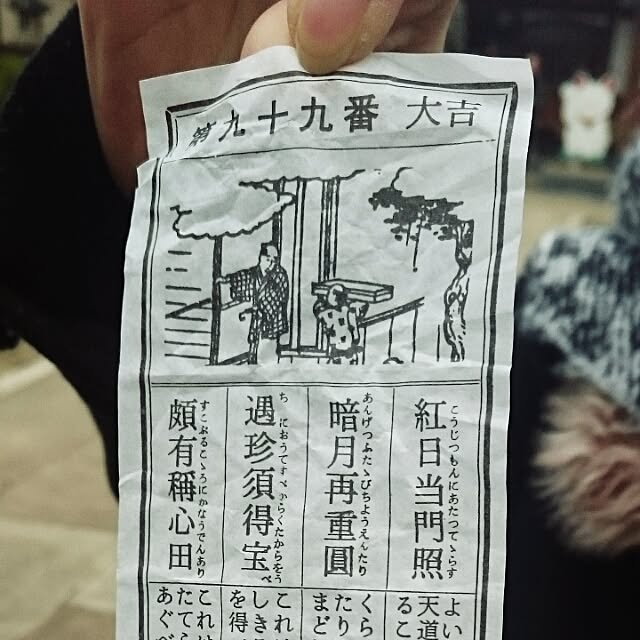 第九十九番 大吉
紅日当門照
こうじつもんにあたつてゝらす
暗月再重圓
あんげつふたゝびちようえんたり
遇珍須得宝
ち におうてすべからくたからをうべ
頗有稱心田
すこぶるこゝろにかなうでんあり
よい
天道
るこ
くら
たり
まど
これ
しき
を得
これ
たてら
あぐべ